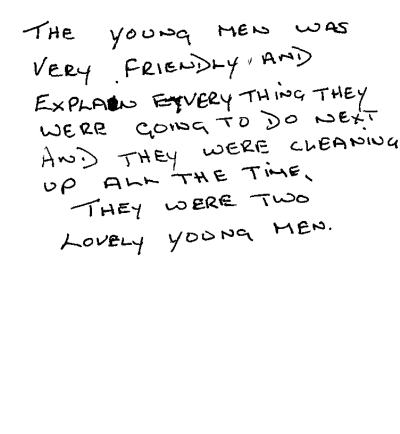 THE YOUNG MEN WAS
VERY FRIENDLY, AND
EXPLAIN EVERY THING THEY
WERE GOING TO DO NEXT
AND THEY WERE CLEANING
UP ALL THE TIME,
THEY WERE TWO
LOVELY YOUNG MEN.